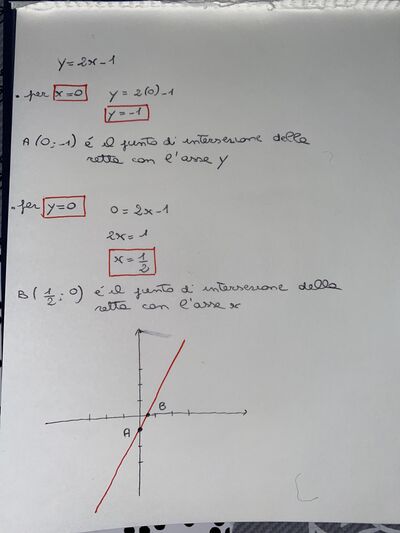 y=2x-1
• per x=0 y=2(0)-1
y=-1
A (0;-1) é il punto di intersezione della
retta con l'asse y
• per y=0 0=2x-1
2x=1
x=1/2
B (1/2;0) é il punto di intersezione della
retta con l'asse x
B
A